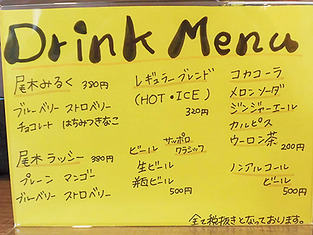 Drink Menu
尾木みるく 390円
ブルーベリー ストロベリー
チョコレート はちみつきなこ
尾木ラッシー 390円
プレーン マンゴー
ブルーベリー ストロベリー
レギュラーブレンド
(HOT・ICE)
320円
ビール サッポロ
クラシック
生ビール
瓶ビール
500円
コカコーラ
メロンソーダ
ジンジャーエール
カルピス
ウーロン茶 200円
ノンアルコール
ビール
500円
全て税抜きとなっております。